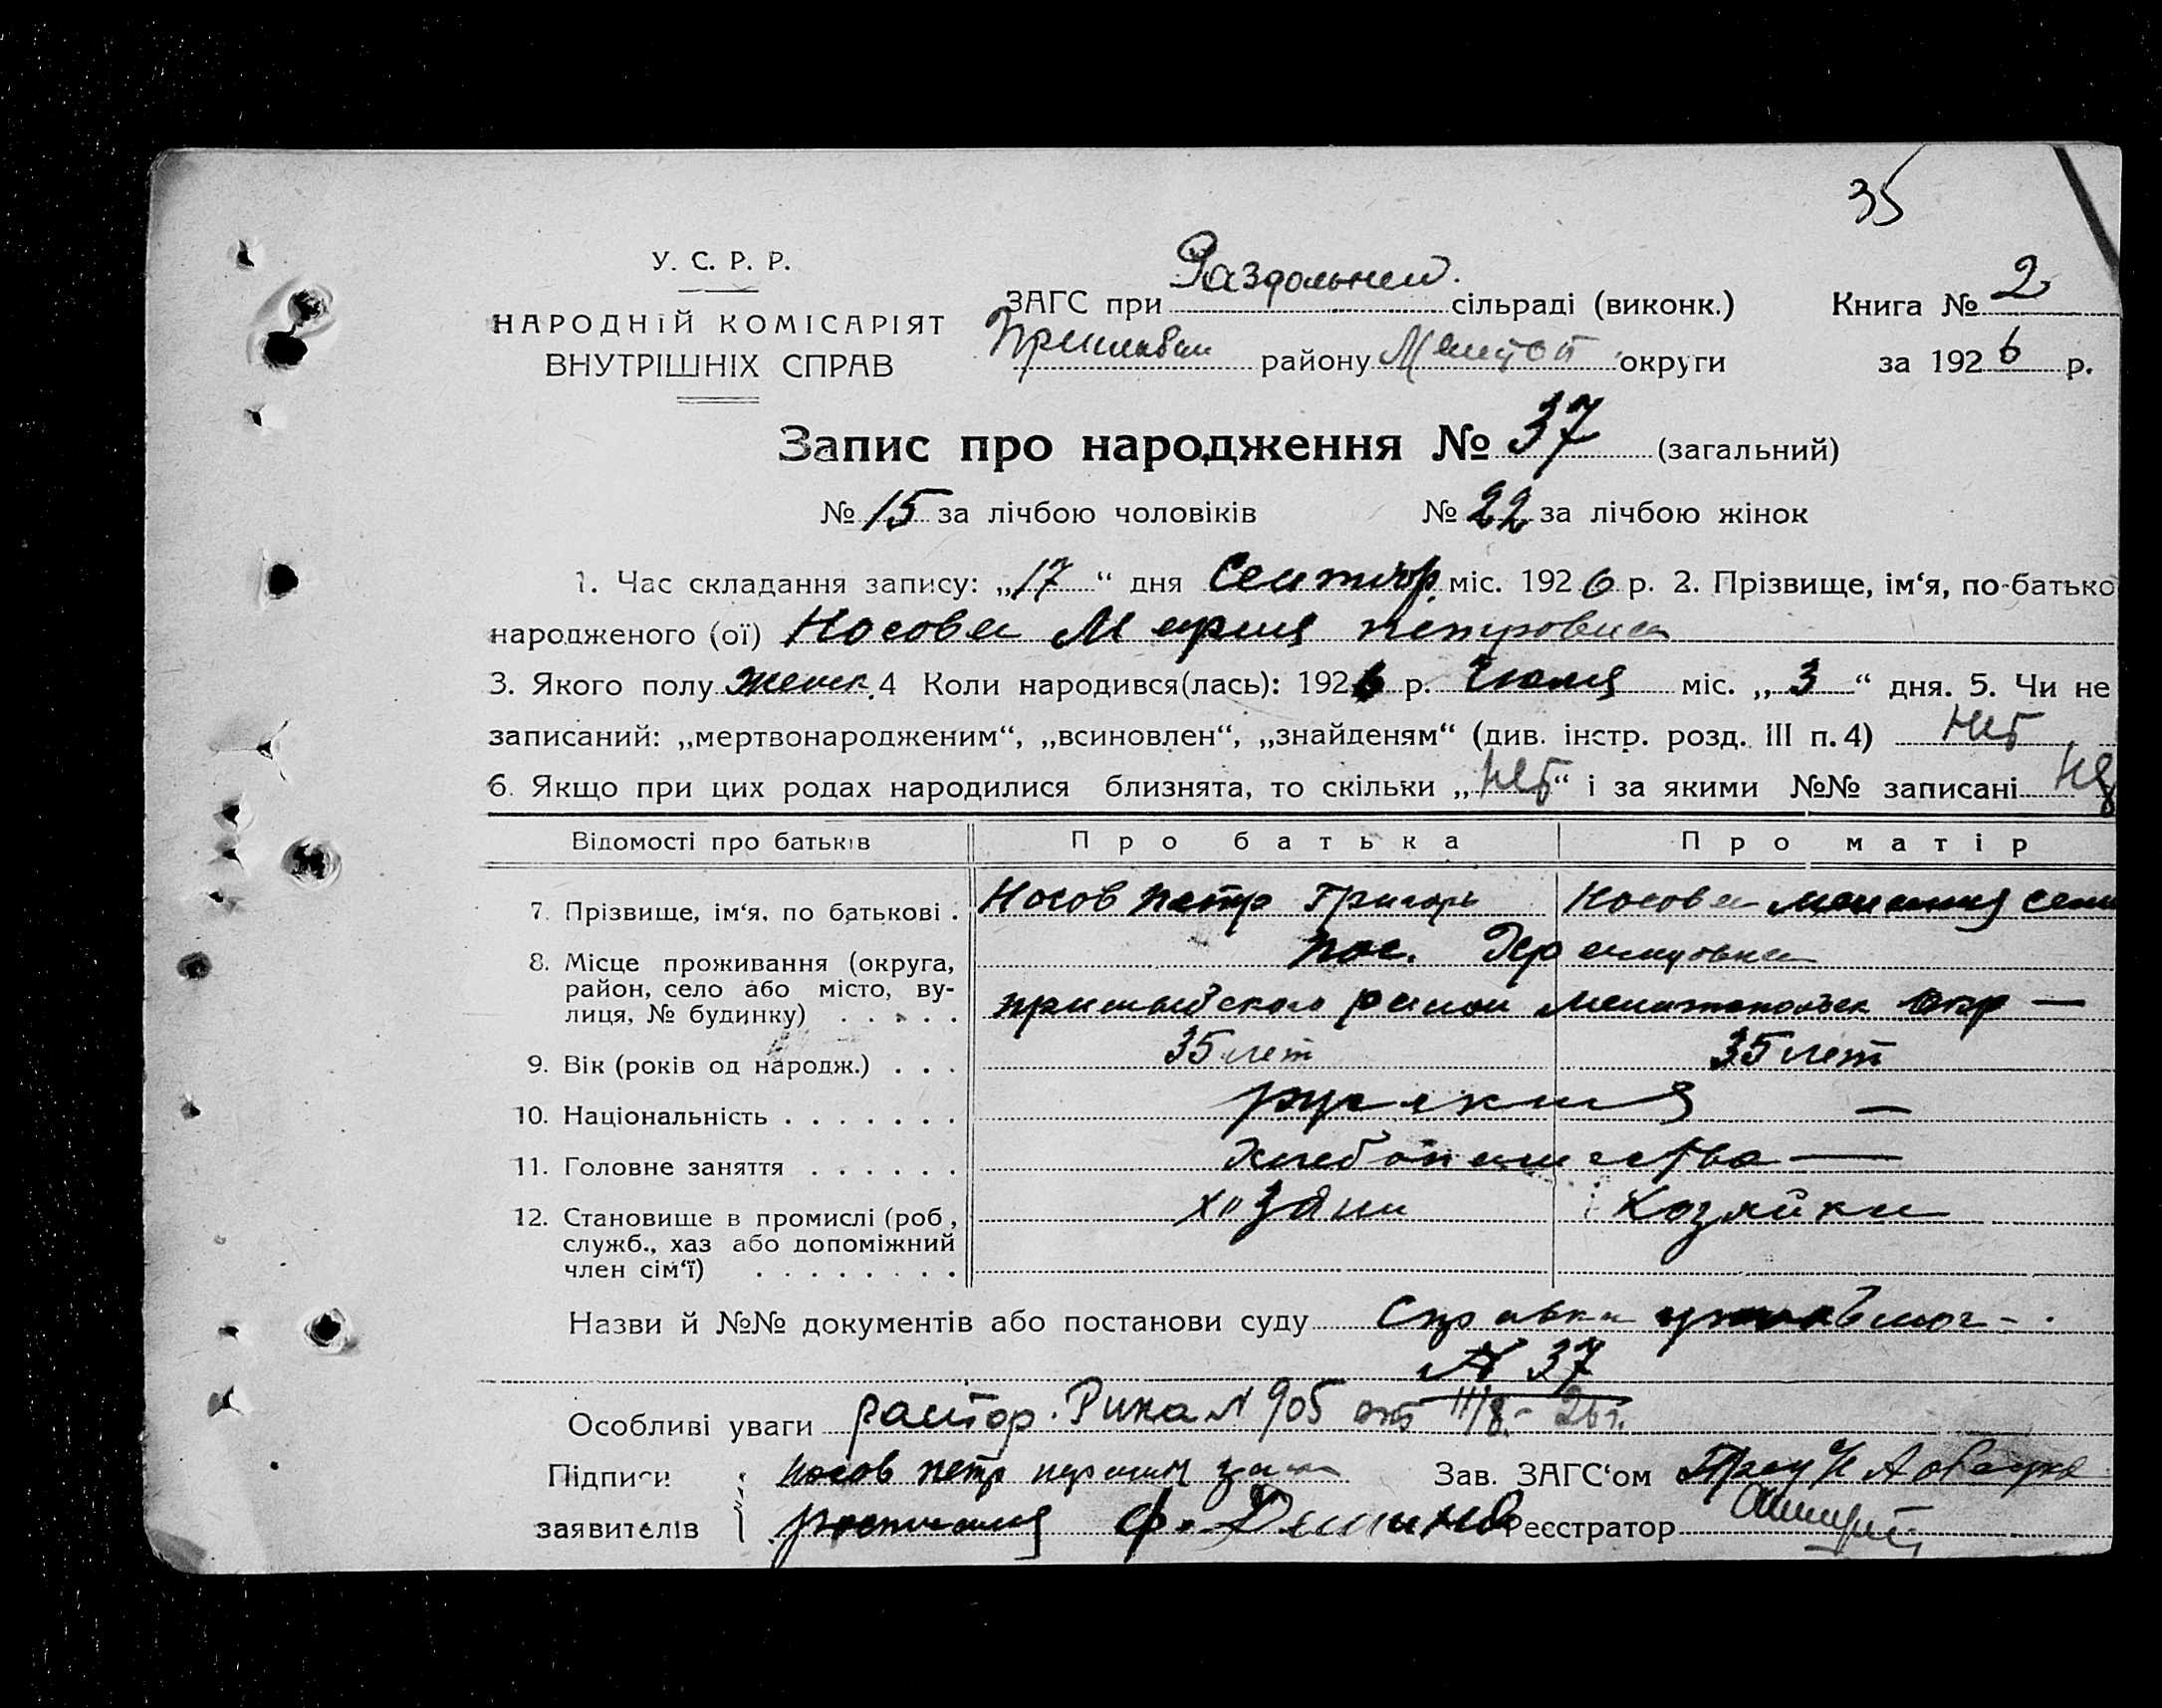 35
У. С. Р. Р.
НАРОДНІЙ КОМІСАРІЯТ
ВНУТРІШНІХ СПРАВ
ЗАГС при Раздольнен. сільраді (виконк.)
Книга № 2
району округи
за 1926 р.
Запис про народження № 37 (загальний)
№ 15 за лічбою чоловіків № 22 за лічбою жінок
1. Час складання запису: „17“ дня Сентябр. міс. 1926 р. 2. Прізвище, ім‘я, по-батько
народженого (ої) Носова Мария петровна
3. Якого полу Женск. 4 Коли народився(лась): 1926 р. Июля міс. „3“ дня. 5. Чи не
записаний: „мертвонародженим“, „всиновлен“, „знайденям“ (див. інстр. розд. III п. 4) Нет
6. Якщо при цих родах народилися близнята, то скільки „Нет“ і за якими №№ записані
Відомості про батьків Про батька Про матір
7. Прізвище, ім‘я, по батькові . Носов петр Григорь Носова
8. Місце проживання (округа, пос.
район, село або місто, ву-
лиця, № будинку) . . . . .
9. Вік (років од народж.) . . . 35 лет 35 лет
10. Національність . . . . . . . русския —
11. Головне заняття . . . . . . Хлебопашество —
12. Становище в промислі (роб, хозяин Хозяйка
служб., хаз або допоміжний
член сім‘ї) . . . . . . . .
Назви й №№ документів або постанови суду Справка
№ 37
Особливі уваги распор. Рика № 905 от III/8 - 26 г.
Підписи Носов петр Зав. ЗАГС‘ом
заявителів Ф. Реєстратор